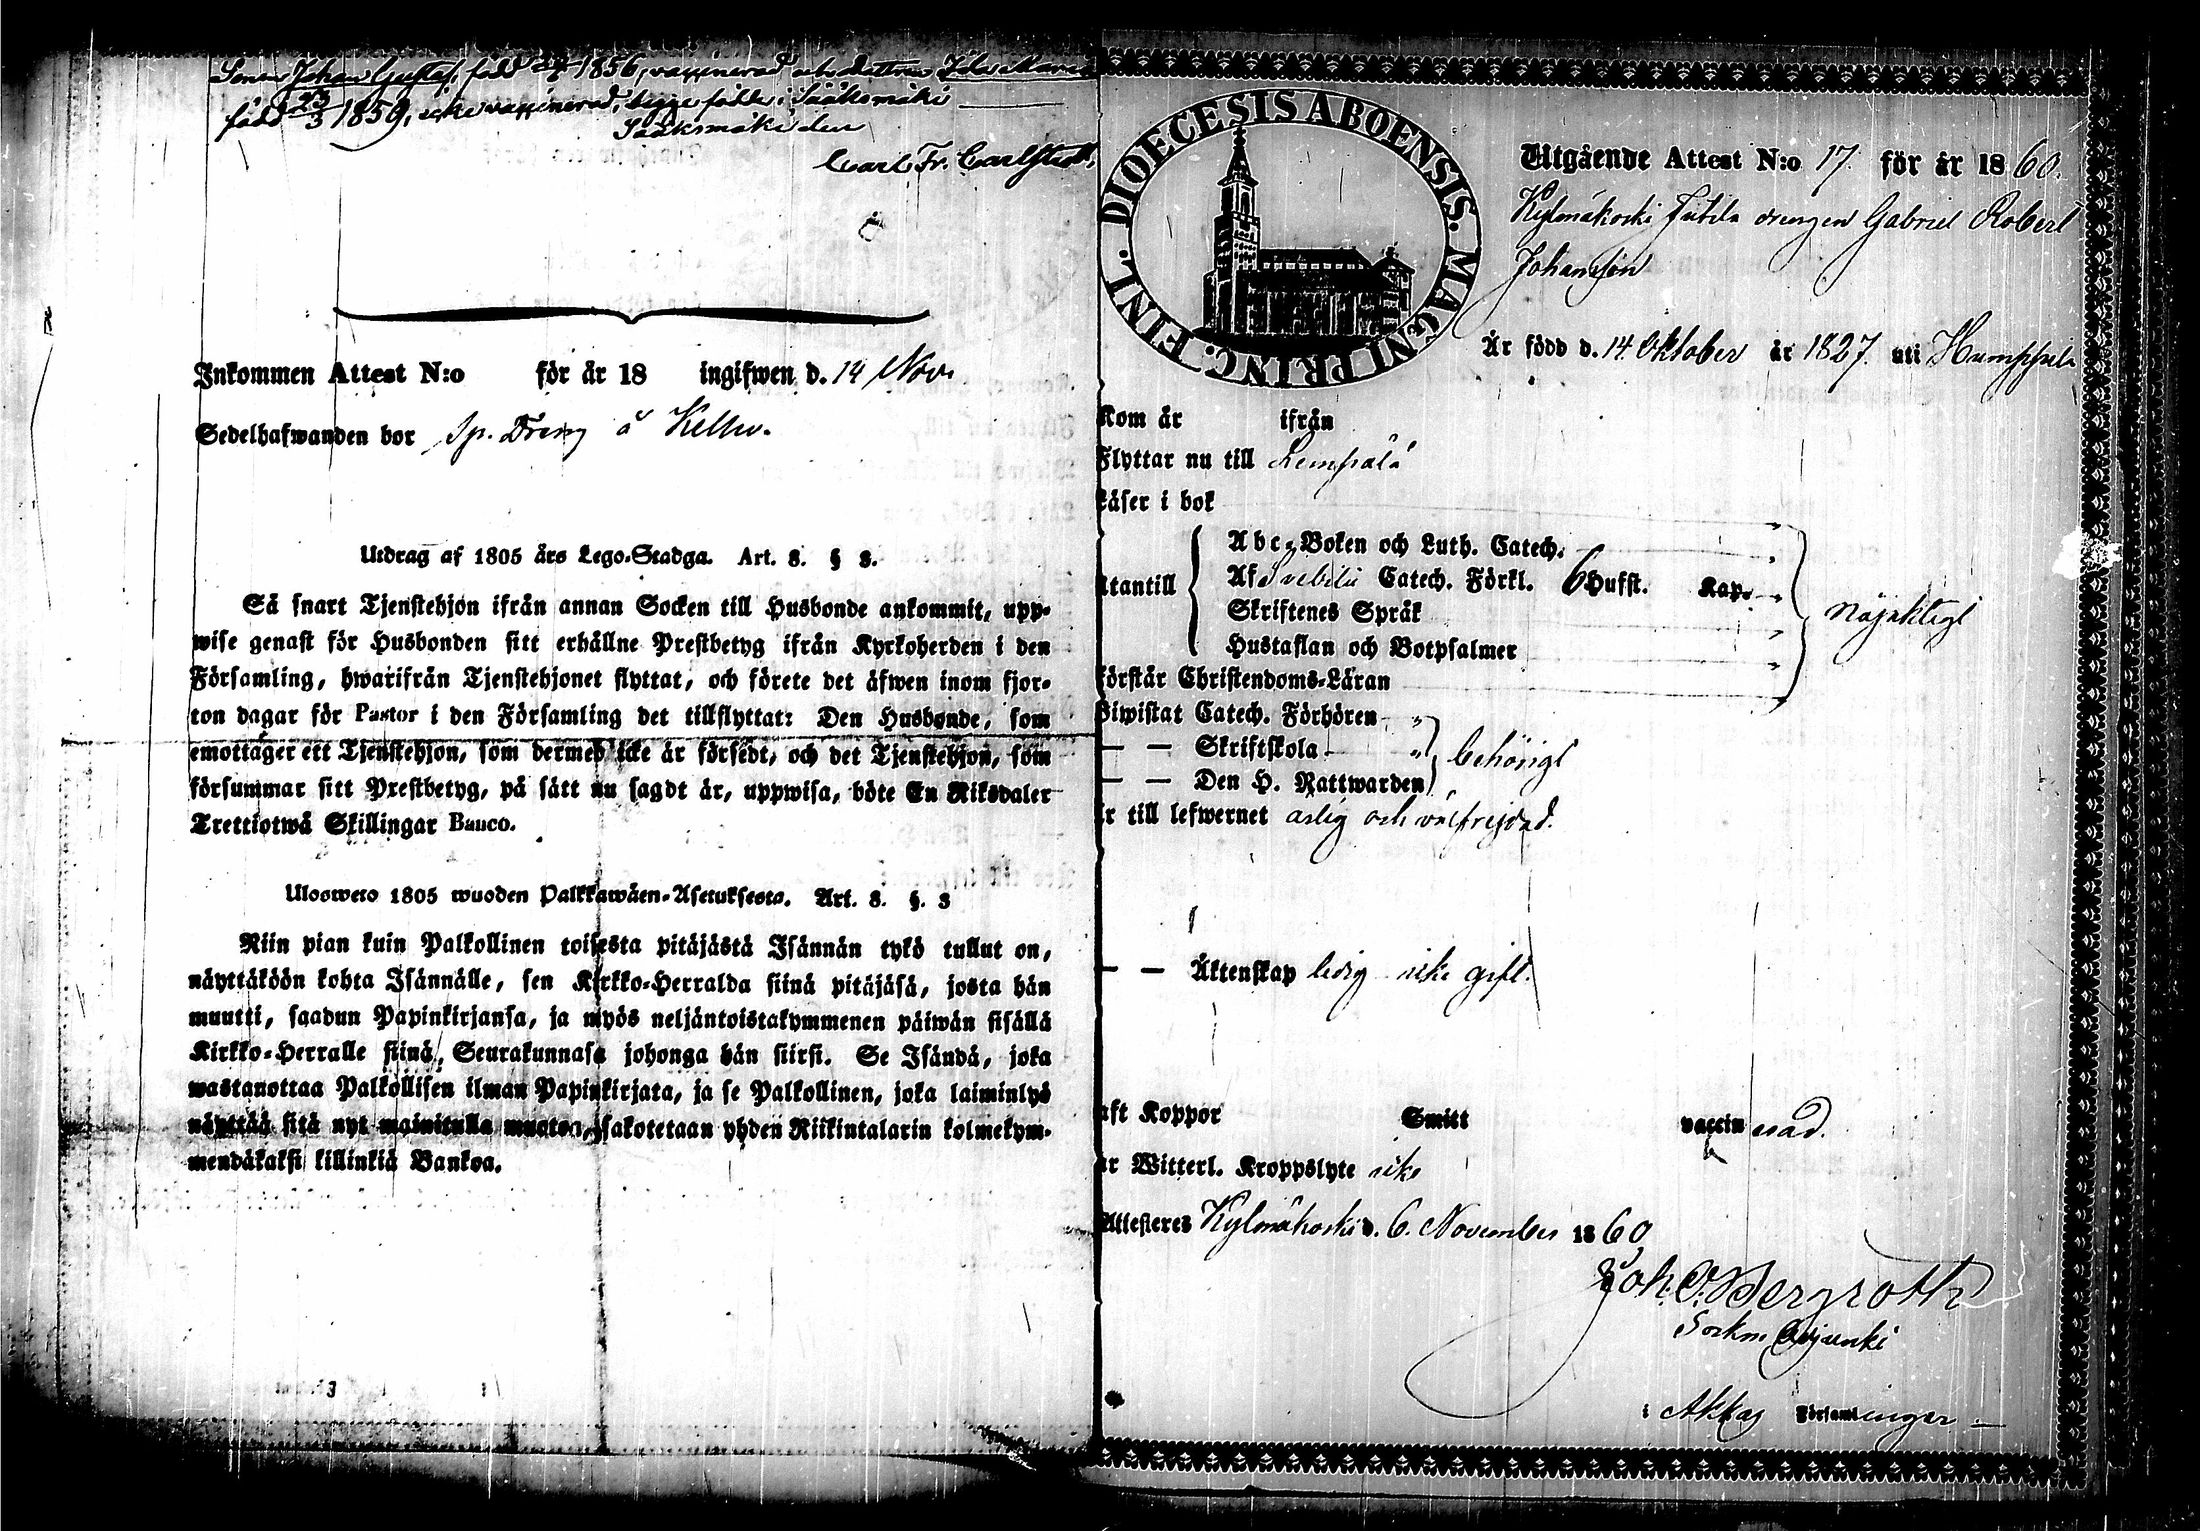 Sonen Johan Gustaf, född 1856, vaxinerad och dottren Maria
född 23/3 1859, icke vaxinerad, begge födde i Sääksmäki
Sääksmäki den
Carl Fr. Carlstedt,
Inkommen Attest N:o för år 18 ingifwen d. 14 Nov.
Sedelhafwanden bor Sp. Dräng å
Utdrag af 1805 års Lego-Stadga. Art. 8. § 3.
Så snart Tjenstehjon ifrån annan Socken till Husbonde ankommit, upp-
wise genast för Husbonden sitt erhållne Prestbetyg ifrån Kyrkoherden i den
Församling, hwarifrån Tjenstehjonet flyttat, och förete det äfwen inom fjor-
ton dagar för Pastor i den Församling det tillflyttat: Den Husbonde, som
emottager ett Tjenstehjon, som dermed icke är försedt, och det Tjenstehjon, som
försummar sitt Prestbetyg, på sätt nu sagdt är, uppwisa, böte En Riksdaler
Trettiotwå Skillingar Banco.
Ulosweto 1805 wuoden Palkkawäen-Asetuksesta. Art. 8. §. 3
Niin pian kuin Palkollinen toisesta pitäjästä Isännän tykö tullut on,
näyttäköön kohta Isännälle, sen Kirkko-Herralda siinä pitäjäsä, josta hän
muutti, saadun Papinkirjansa, ja myös neljäntoistakymmenen päiwän sisällä
Kirkko-Herralle siinä Seurakunnasa johonga hän siirsi. Se Isändä, joka
wastanottaa Palkollisen ilman Papinkirjata, ja se Palkollinen, joka laiminlyö
näyttää sitä nyt mainitulla muoton, sakotetaan yhden Riikintalarin kolmekym-
mendäkaksi killinkiä Bankoa.
DIOECESIS ABOENSIS. MAGNI PRINC. FINL.
Utgående Attest N:o 17. för år 1860.
Kylmäkoski drengen Gabriel Robert
Johansson
Är född d. 14 Oktober år 1827. uti Humppila
Kom år ifrån
Flyttar nu till Lempälä
Läser i bok
Utantill
Abc-Boken och Luth. Catech.
Af Svebilii Catech. Förkl. 6 Hufst. Kap.
Skriftenes Språk
Hustaflan och Botpsalmer
nöjaktigt
Förstår Christendoms-Läran
Biwistat Catech. Förhören
— — Skriftskola
— — Den H. Nattwarden
behörigt
Är till lefwernet ärlig och välfrejdad.
— — Äktenskap ledig icke gift.
Haft Koppor Smitt vaccinerad.
Har Witterl. Kroppslyte icke
Attesteres Kylmäkoski d. 6. November 1860
Joh. O. Bergroth
Sockne Adjunkt
i Akkas Församlingar